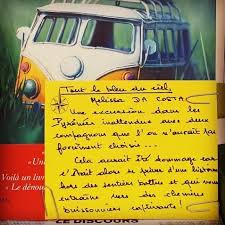 Tout le bleu du ciel,
Melissa DA COSTA
Une excursion dans les
Pyrénées inattendue avec deux
compagnons que l'on n'aurait pas
forcément choisis...
Cela aurait été dommage car
c'était alors se priver d'une histoire
hors des sentiers battus et qui nous
entraîne sur des chemins
buissonniers captivants!
«Un
Voilà un livr
« Le dénoue
LE DISCOURS